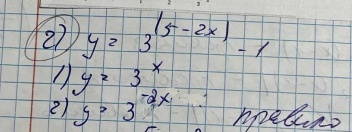 2) y = 3^(5-2x) - 1
1) y = 3^x
2) y = 3^-2x
правило